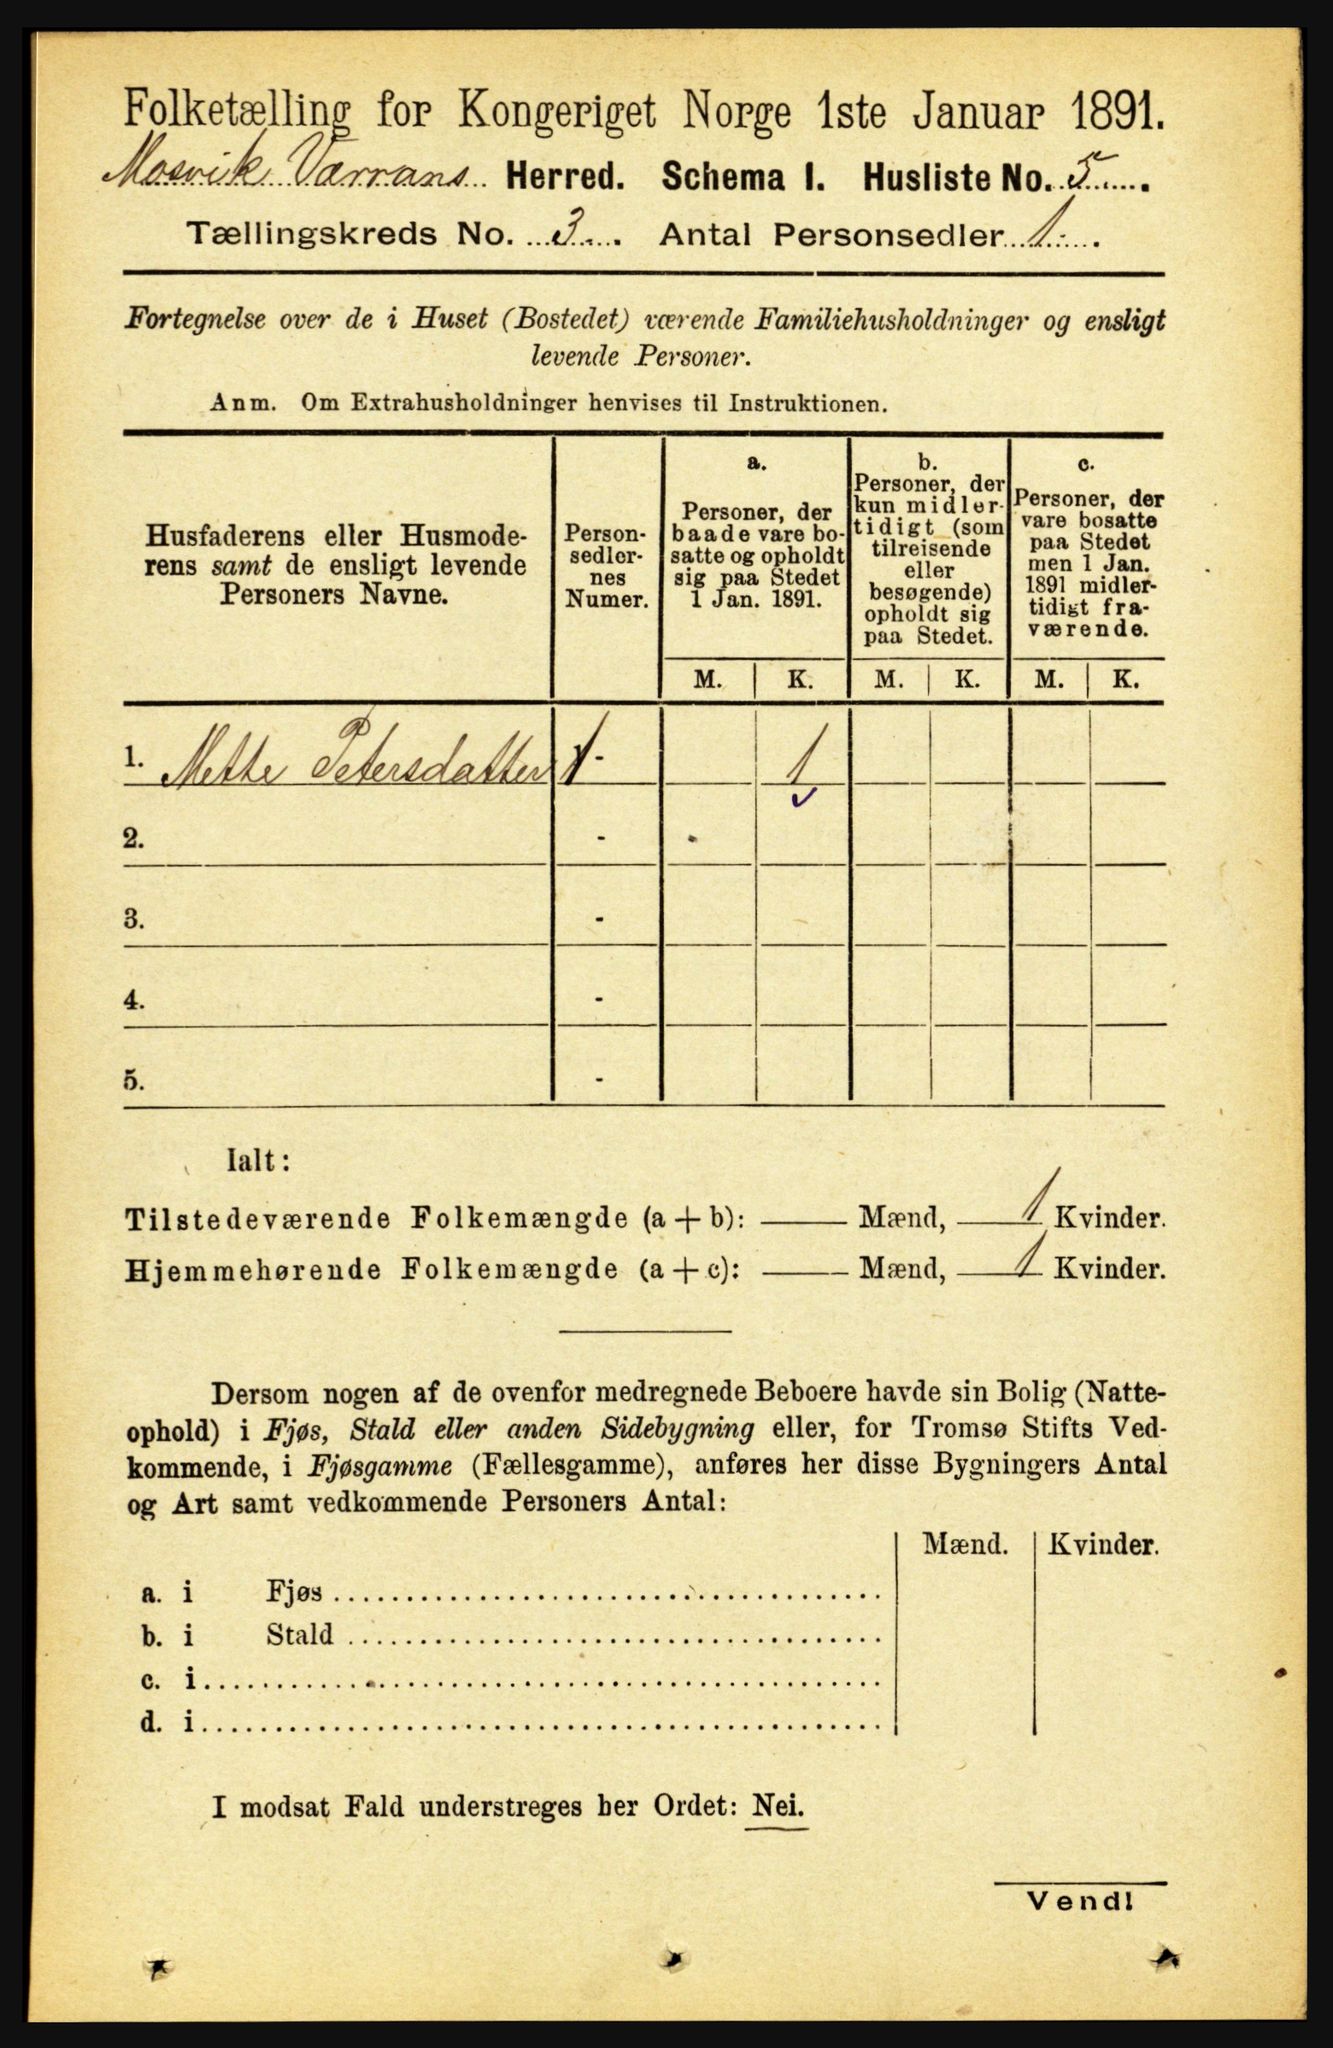 Folketælling for Kongeriget Norge 1ste Januar 1891.
Mosvik Værrans Herred. Schema I. Husliste No. 5
Tællingskreds No. 3. Antal Personsedler 1.
Fortegnelse over de i Huset (Bostedet) værende Familiehusholdninger og ensligt
levende Personer.
Anm. Om Extrahusholdninger henvises til Instruktionen.
Husfaderens eller Husmode-
rens samt de ensligt levende
Personers Navne.
Person-
sedler-
nes
Numer.
a.
Personer, der
baade vare bo-
satte og opholdt
sig paa Stedet
1 Jan. 1891.
b.
Personer, der
kun midler-
tidigt (som
tilreisende
eller
besøgende)
opholdt sig
paa Stedet.
c.
Personer, der
vare bosatte
paa Stedet
men 1 Jan.
1891 midler-
tidigt fra-
værende.
M. K. M. K. M. K.
1. Mette Petersdatter 1 - 1
2. -
3. -
4. -
5. -
Ialt:
Tilstedeværende Folkemængde (a + b): — Mænd, 1 Kvinder.
Hjemmehørende Folkemængde (a + c): — Mænd, 1 Kvinder.
Dersom nogen af de ovenfor medregnede Beboere havde sin Bolig (Natte-
ophold) i Fjøs, Stald eller anden Sidebygning eller, for Tromsø Stifts Ved-
kommende, i Fjøsgamme (Fællesgamme), anføres her disse Bygningers Antal
og Art samt vedkommende Personers Antal:
Mænd. Kvinder.
a. i Fjøs
b. i Stald
c. i
d. i
I modsat Fald understreges her Ordet: Nei.
Vend!